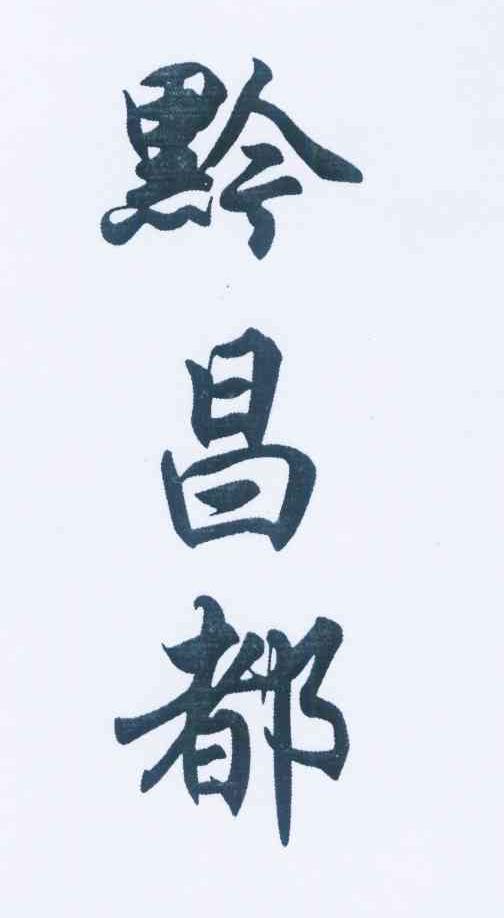 黔昌都